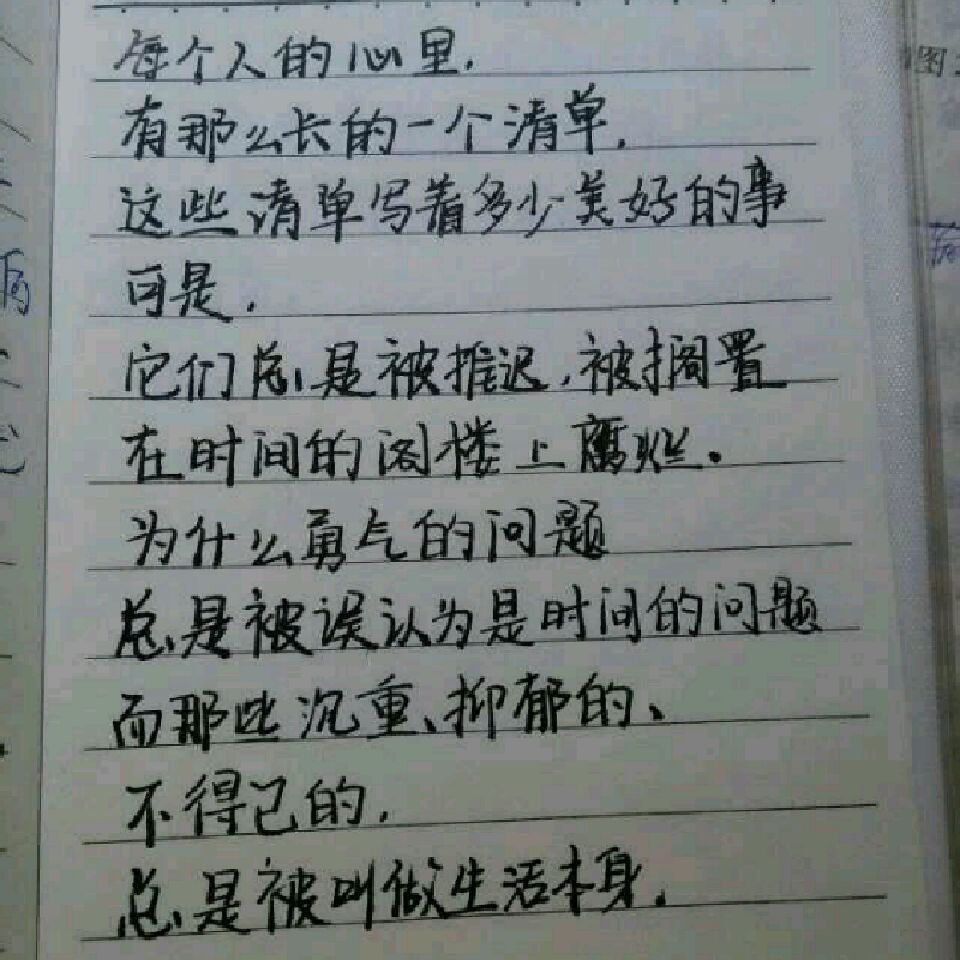 每个人的心里.
有那么长的一个清单.
这些清单写着多少美好的事
可是.
它们总是被推迟,被搁置
在时间的阁楼上腐烂.
为什么勇气的问题
总是被误认为是时间的问题
而那些沉重、抑郁的、
不得己的.
总是被叫做生活本身.
图